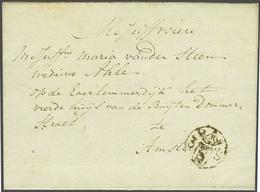 Mejuffrouw
Mejuffr. Maria vander Steen
weduwe Ahle
op de Haerlemmerdijk het
vierde huijs van de Buijten Dommers
Straet
te
Amst